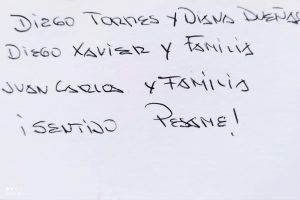 DIEGO TORRES Y DIANA DUEÑAS
DIEGO XAVIER Y FAMILIA
JUAN CARLOS Y FAMILIA
¡SENTIDO PESAME!